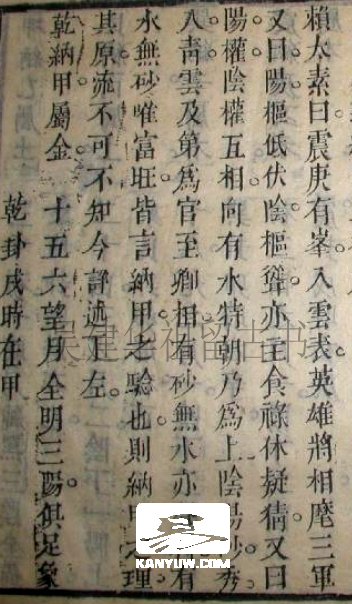 賴太素曰震庚有峯入雲表英雄將相麾三軍
又曰陽樞低伏陰樞聳亦主食祿休疑猜又曰
陽權陰權互相向有水特朝乃爲上陰陽 秀
入青雲及第爲官至卿相有砂無水亦 有
水無砂唯富旺皆言納甲之驗也則納 理
其原流不可不知今詳述于左
乾納甲屬金 十五六望月全明三陽俱足象
乾卦戌時在甲
吴建华祖留古书
KANYUW.COM